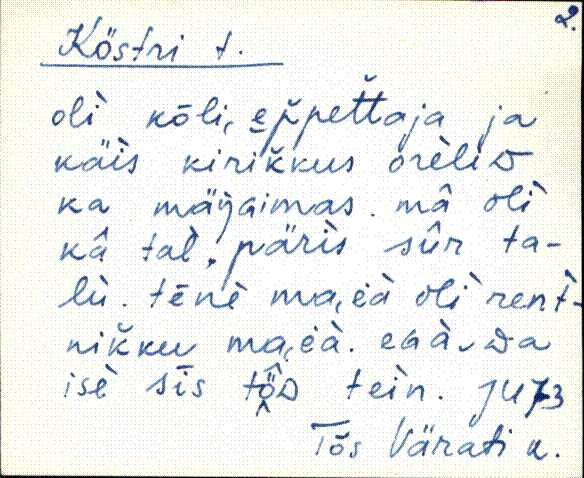 2.
Köstri t.
olì kōli, ep̌pet̆taja ja
käìs kirik̆kus orèliᴅ
ka mäŋ̀aimas. mâ olì
kâ tal, pärìs sûr ta-
lù. tēnè ma,eà olì rent̀-
nik̆ku ma,eà. egà ᴅa
isè sīs tö̂ᴅ tein.
Tõs Värati k.